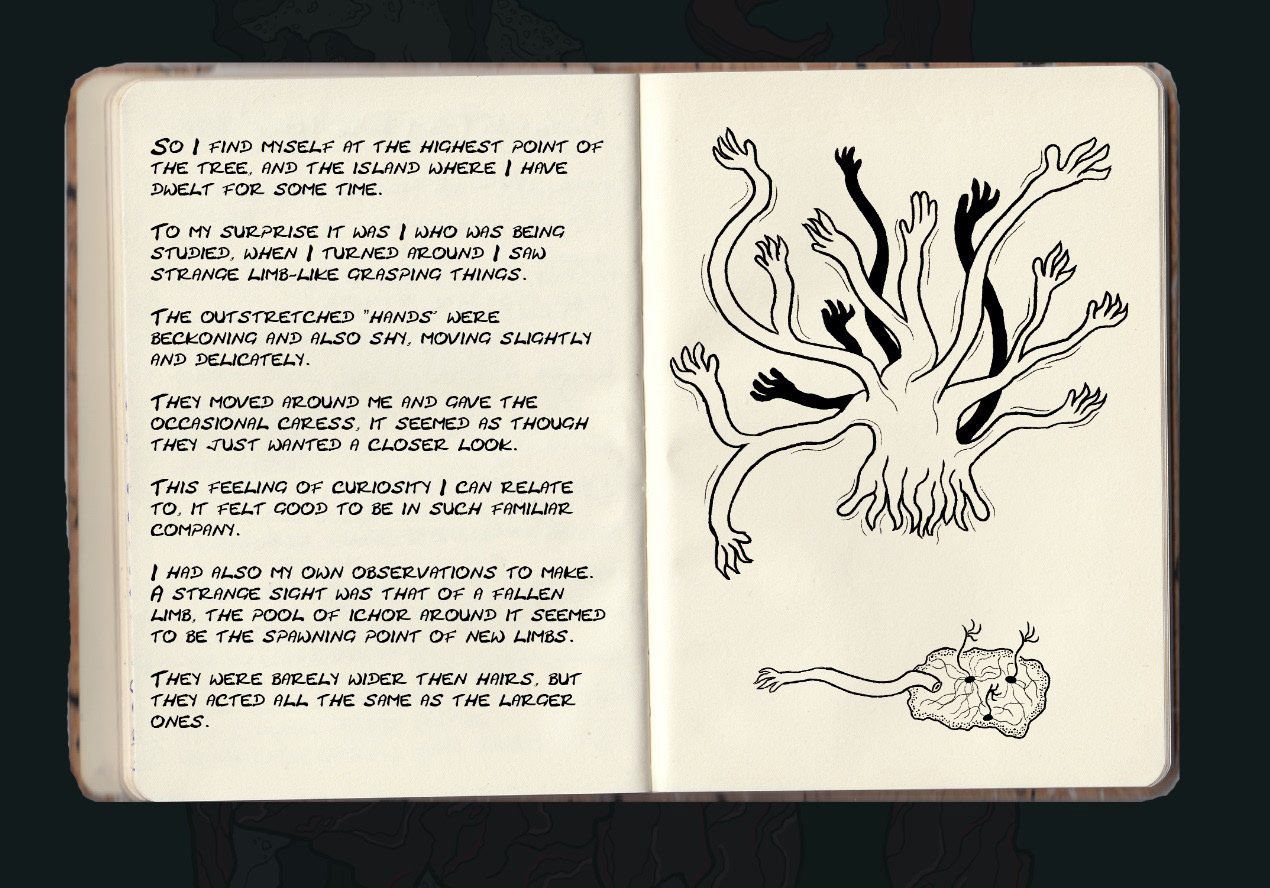 So I FIND MYSELF AT THE HIGHEST POINT OF
THE TREE, AND THE ISLAND WHERE I HAVE
DWELT FOR SOME TIME.
TO MY SURPRISE IT WAS I WHO WAS BEING
STUDIED, WHEN I TURNED AROUND I SAW
STRANGE LIMB-LIKE GRASPING THINGS.
THE OUTSTRETCHED "HANDS" WERE
BECKONING AND ALSO SHY, MOVING SLIGHTLY
AND DELICATELY.
THEY MOVED AROUND ME AND GAVE THE
OCCASIONAL CARESS, IT SEEMED AS THOUGH
THEY JUST WANTED A CLOSER LOOK.
THIS FEELING OF CURIOSITY I CAN RELATE
TO, IT FELT GOOD TO BE IN SUCH FAMILIAR
COMPANY.
I HAD ALSO MY OWN OBSERVATIONS TO MAKE.
A STRANGE SIGHT WAS THAT OF A FALLEN
LIMB, THE POOL OF ICHOR AROUND IT SEEMED
TO BE THE SPAWNING POINT OF NEW LIMBS.
THEY WERE BARELY WIDER THEN HAIRS, BUT
THEY ACTED ALL THE SAME AS THE LARGER
ONES.